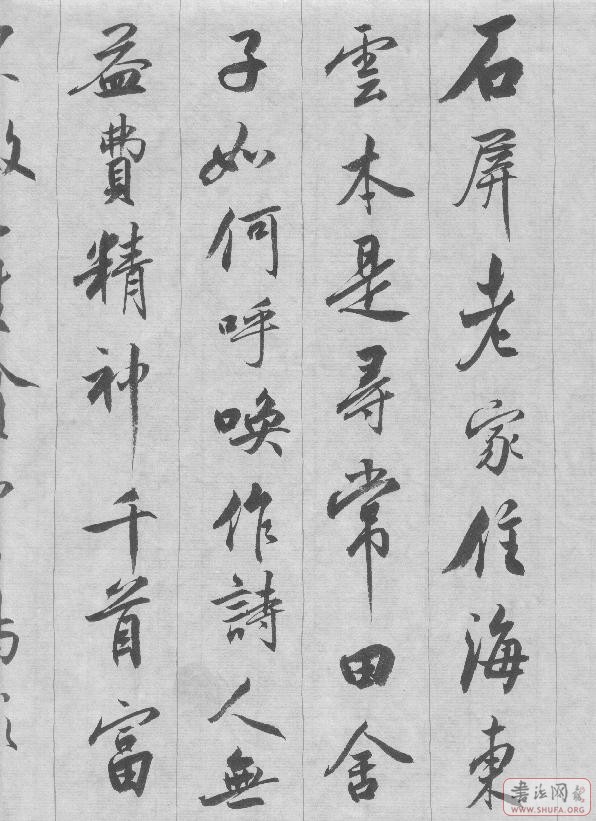 石屏老家住海東
雲本是尋常田舍
子如何呼喚作詩人無
益費精神千首富
書法网
WWW.SHUFA.ORG